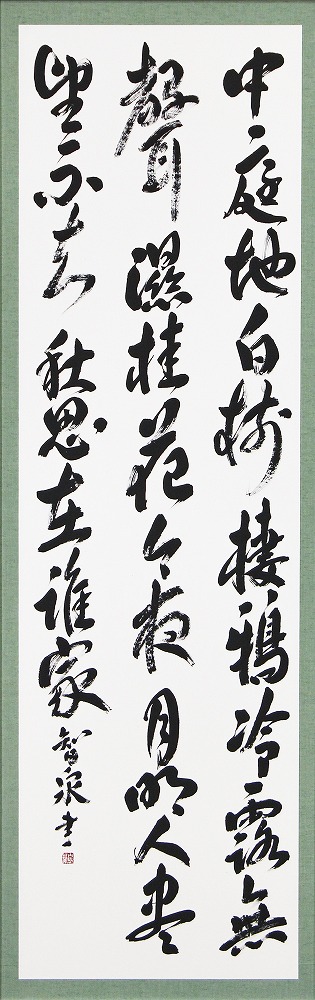 中庭地白樹棲鴉冷露無
聲濕桂花今夜月明人尽
望不知秋思在誰家智泉書